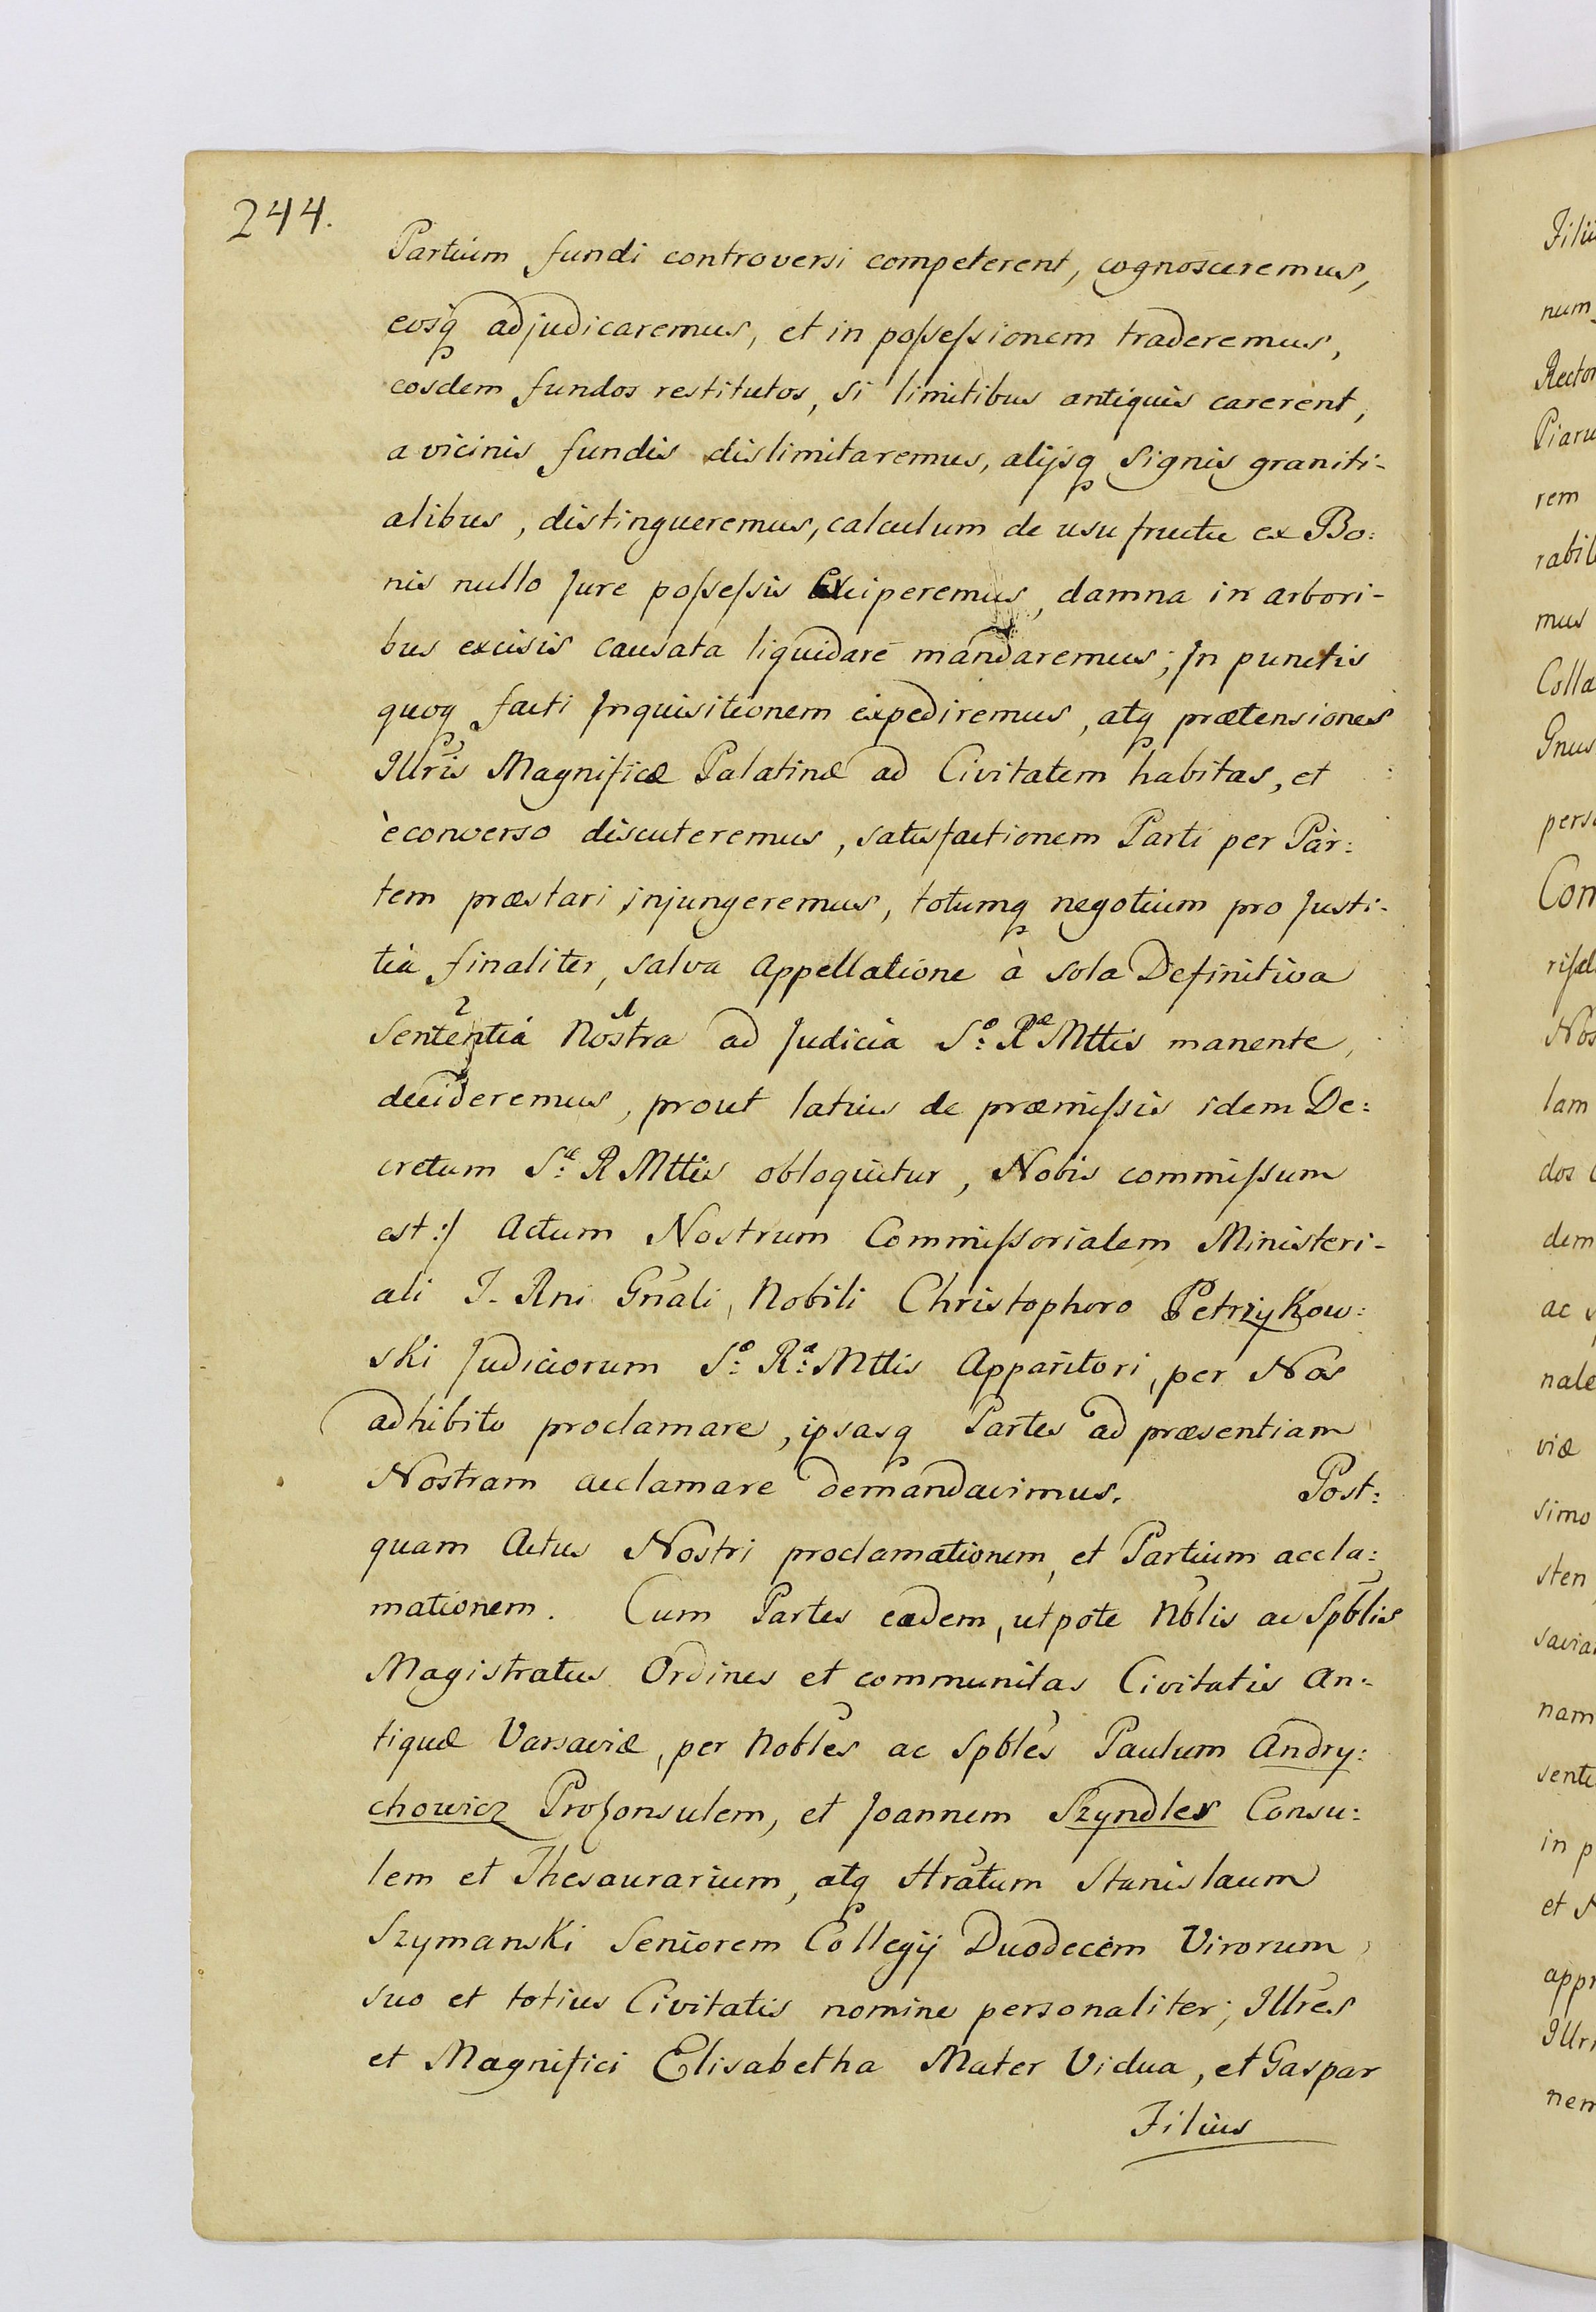 244.
Partium fundi controversi competerent, cognosceremus,
eosq̃ adjudicaremus, et in poſseſsionem traderemus,
eosdem fundos restitutos, si limitibus antiquis carerent,
a vicinis fundis dislimitaremus, alijsq̃ signis graniti-
alibus, distingueremus, calculum de usu fructu ex Bo:
nis nullo Jure poſseſsis Exciperemus, damna in arbori-
bus excisis causata liquidare mandaremus; In punctis
quoq̃ facti Inquisitionem expediremus, atq̃ prætensiones
Illris Magnificæ Palatinæ ad Civitatem habitas, et
èconverso discuteremus, satisfactionem Parti per Par:
tem præstari injungeremus, totumq̃ negotium pro Justi-
tia finaliter, salva Appellatione à sola Definitiva
Sententiá Nostra ad Judicia S: R Mttis manente,
decideremus, prout latius de præmiſsis idem De:
cretum S: R Mttis obloquitur, Nobis commiſsum
est:/ Actum Nostrum Commiſsorialem Ministeri-
ali J. Rni Gñali, Nobili Christophoro Petrzykow:
ski Judiciorum S: R: Mttis Apparitori, per Nos
adhibito proclamare, ipsasq̃ Partes ad præsentiam
Nostram acclamare demandavimus. Post:
quam Actus Nostri proclamationem, et Partium accla:
mationem. Cum Partes eædem, utpote Nblis ac Spblis
Magistratus Ordines et communitas Civitatis An:
tiquæ Varsaviæ, per Nobles ac Spbles Paulum Andry:
chowicz Proconsulem, et Joannem Szyndler Consu:
lem et Thesaurarium, atq̃ Hratum Stanislaum
Szymanski Seniorem Collegij Duodecem Virorum
suo et totius Civitatis nomine personaliter; Illres
et Magnifici Elisabetha Mater Vidua, et Gaspar
Filius